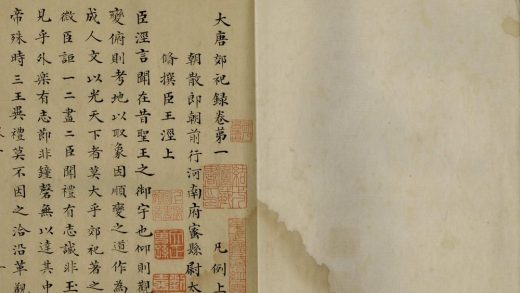 大唐郊祀録卷第一 凡例上
朝散郎朝前行河南府密縣尉太
脩撰臣王涇上
臣涇言聞在昔聖王之御宇也仰則觀
變俯則考地以取象因順變之道作為
成人文以光天下者莫大乎郊祀著之
微臣詎一二盡二臣聞禮有志誠非玉
見乎外樂有志節非鐘磬無以達其中
帝殊時三王異禮莫不因之洽沿革觀